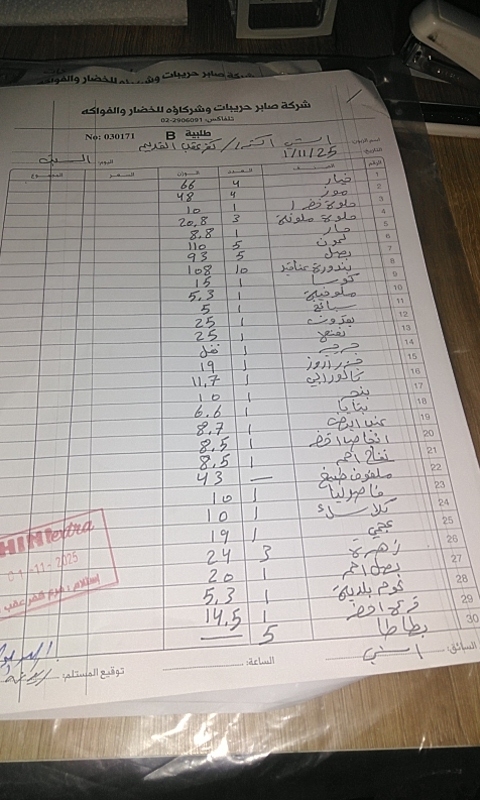 شركة صابر حريبات وشركاؤه للخضار والفواكه
شركة صابر حريبات وشركاؤه للخضار والفواكه
تلفاكس: 02-2906091
No: 030171 طلبية B
اسم الزبون: اكسترا / كفر عقب القديم
التاريخ: 1/11/25 اليوم: السبت
الرقم الصنف العدد الوزن السعر المجموع
1 خيار 4 66
2 موز 4 48
3 حلوة خضرا 1 10
4 حلوة ملونة 3 20,8
5 حار 1 8.8
6 ليمون 5 110
7 بصل 5 93
8 بندورة عناقيد 10 108
9 كوسا 1 15
10 ملوخية 1 5,3
11 سبانخ 1 5
12 بقدونس 1 25
13 نعنع 1 25
14 جرجير 1
15 جزر 1 19
16 1 11,7
17 1 10
18 بتايا 1 6.6
19 عنب ابيض 1 8,7
20 اجاص اخضر 1 8,5
21 تفاح احمر 1 8,5
22 ملفوف طبيخ — 43
23 فاصوليا 1 10
24 1 10
25 عجمي 1 19
26 زهرة 3 24
27 بصل احمر 1 20
28 ثوم بلدية 1 5,3
29 قرع اخضر 1 14,5
30 بطاطا 5 —
السائق: الساعة: توقيع المستلم:
extra
01-11-2025